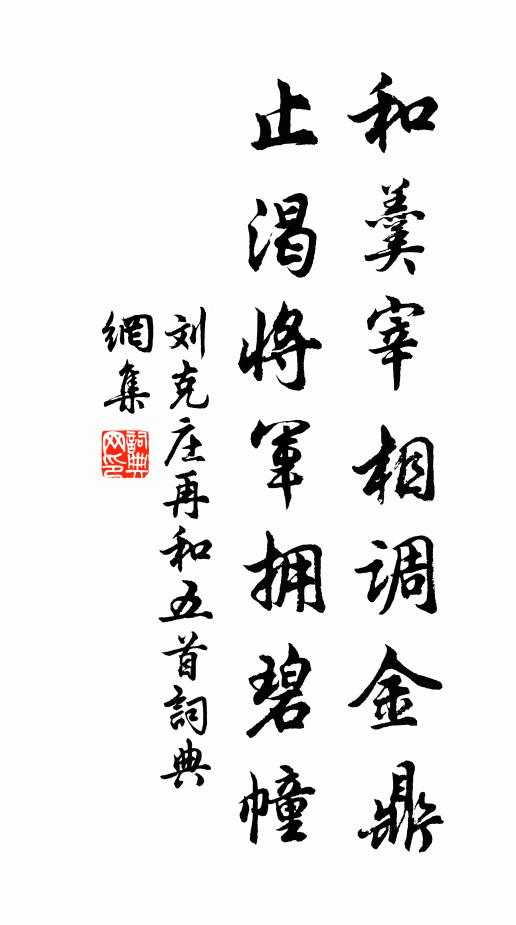 和羹宰相调金鼎
止渴将军拥碧幢
刘克庄再和五首詞典
網集
詞典
网印